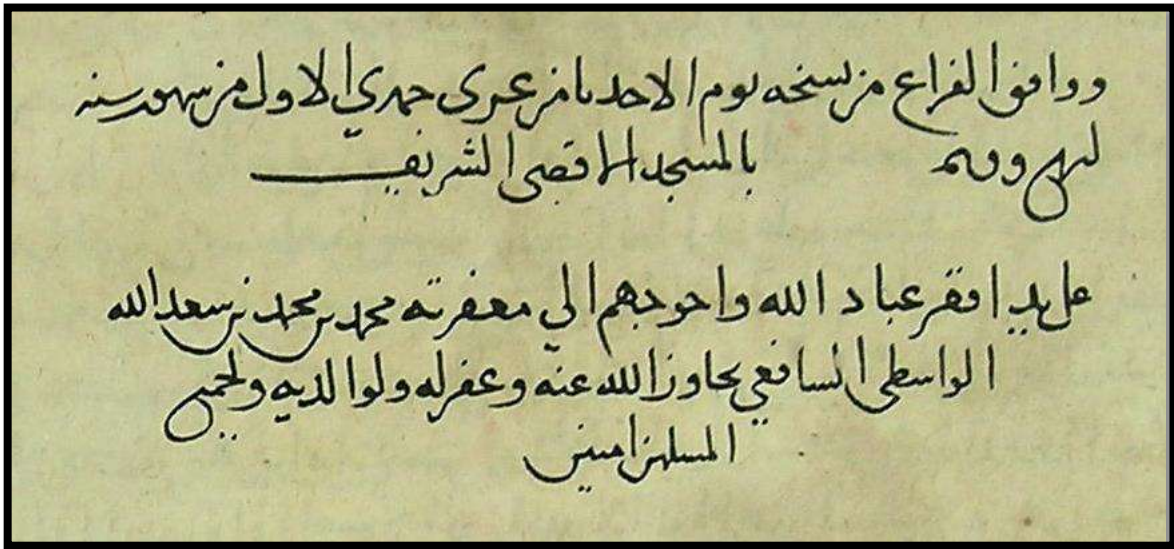 ووافق الفراغ من نسخه يوم الاحد ثامن عشرى جمدي الاول من شهور سنه
بالمسجد الاقصى الشريف
على يد افقر عباد الله واحوجهم الي مغفرته محمد بن محمد بن سعد الله
الواسطى الشافعي تجاوز الله عنه وغفر له ولوالديه ولجميع
المسلمين امين